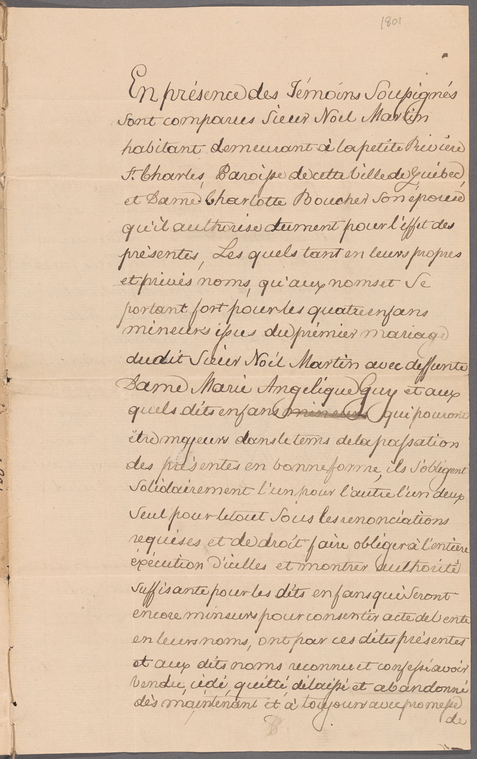 1801
En présence des Témoins Soussignés
sont comparus Sieur Noël Martin
habitant demeurant à la petite Rivière
St. Charles, Paroisse de cette Ville de Québec,
et Dame Charlotte Boucher son épouse
qu'il authorise dument pour l'effet des
présentes, Les quels tant en leurs propres
et privés noms, qu'aux noms et se
portant fort pour les quatre enfans
mineurs issus du prémier mariage
dudit Sieur Noël Martin avec deffunte
Dame Marie Angelique Guy et aux
quels dits enfans mineurs qui pouront
être majeurs dans le tems de la passation
des présentes en bonne forme, ils s'obligent
solidairement l'un pour l'autre l'un deux
seul pour le tout sous les renonciations
requises et de droit faire obliger à l'entière
éxécution d'icelles et montrer authorité
suffisante pour les dits enfans qui seront
encore mineurs pour consentir acte de Vente
en leurs noms, ont par ces dites présentes
et aux dits noms reconnu et confessé avoir
vendu, cédé, quitté délaissé et abandonné
dès maintenant et à toujours avec promesse
de